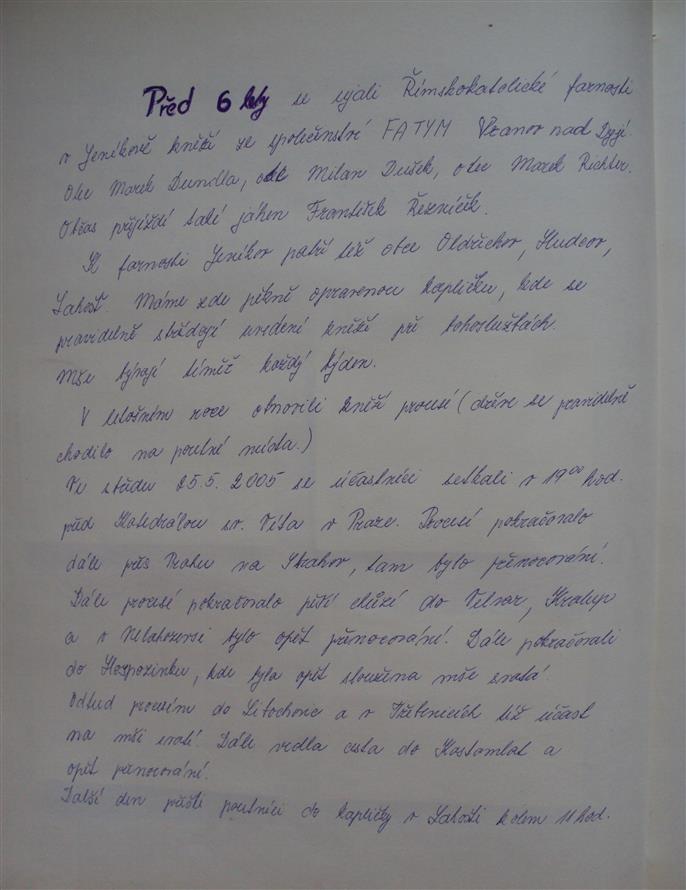 Před 6 lety se ujali Římskokatolické farnosti
v Jeníkově kněží ze společenství FATYM Vranov nad Dyjí.
Otec Marek Dundla, otec Milan Dušek, otec Marek Richter.
Občas přijíždí také jáhen František Řezníček.
K farnosti Jeníkov patří též obce Oldřichov, Hudcov,
Lahošť. Máme zde pěkně opravenou kapličku, kde se
pravidelně střídají uvedení kněží při bohoslužbách.
Mše bývají téměř každý týden.
V letošním roce obnovili kněží procesí (dříve se pravidelně
chodilo na poutní místa.)
Ve středu 25.5. 2005 se účastníci setkali v 19⁰⁰ hod.
před Katedrálou sv. Víta v Praze. Procesí pokračovalo
dále přes Prahu na Strahov, tam bylo přenocování.
Dále procesí pokračovalo pěší chůzí do Velvar, Kralup
a v Nelahozevsi bylo opět přenocování. Dále pokračovali
do Hospozínku, kde byla opět sloužena mše svatá.
Odtud procesím do Litochovic a v Třebenicích též účast
na mši svaté. Dále vedla cesta do Kostomlat a
opět přenocování.
Další den přišli poutníci do kapličky v Lahošti kolem 11 hod.